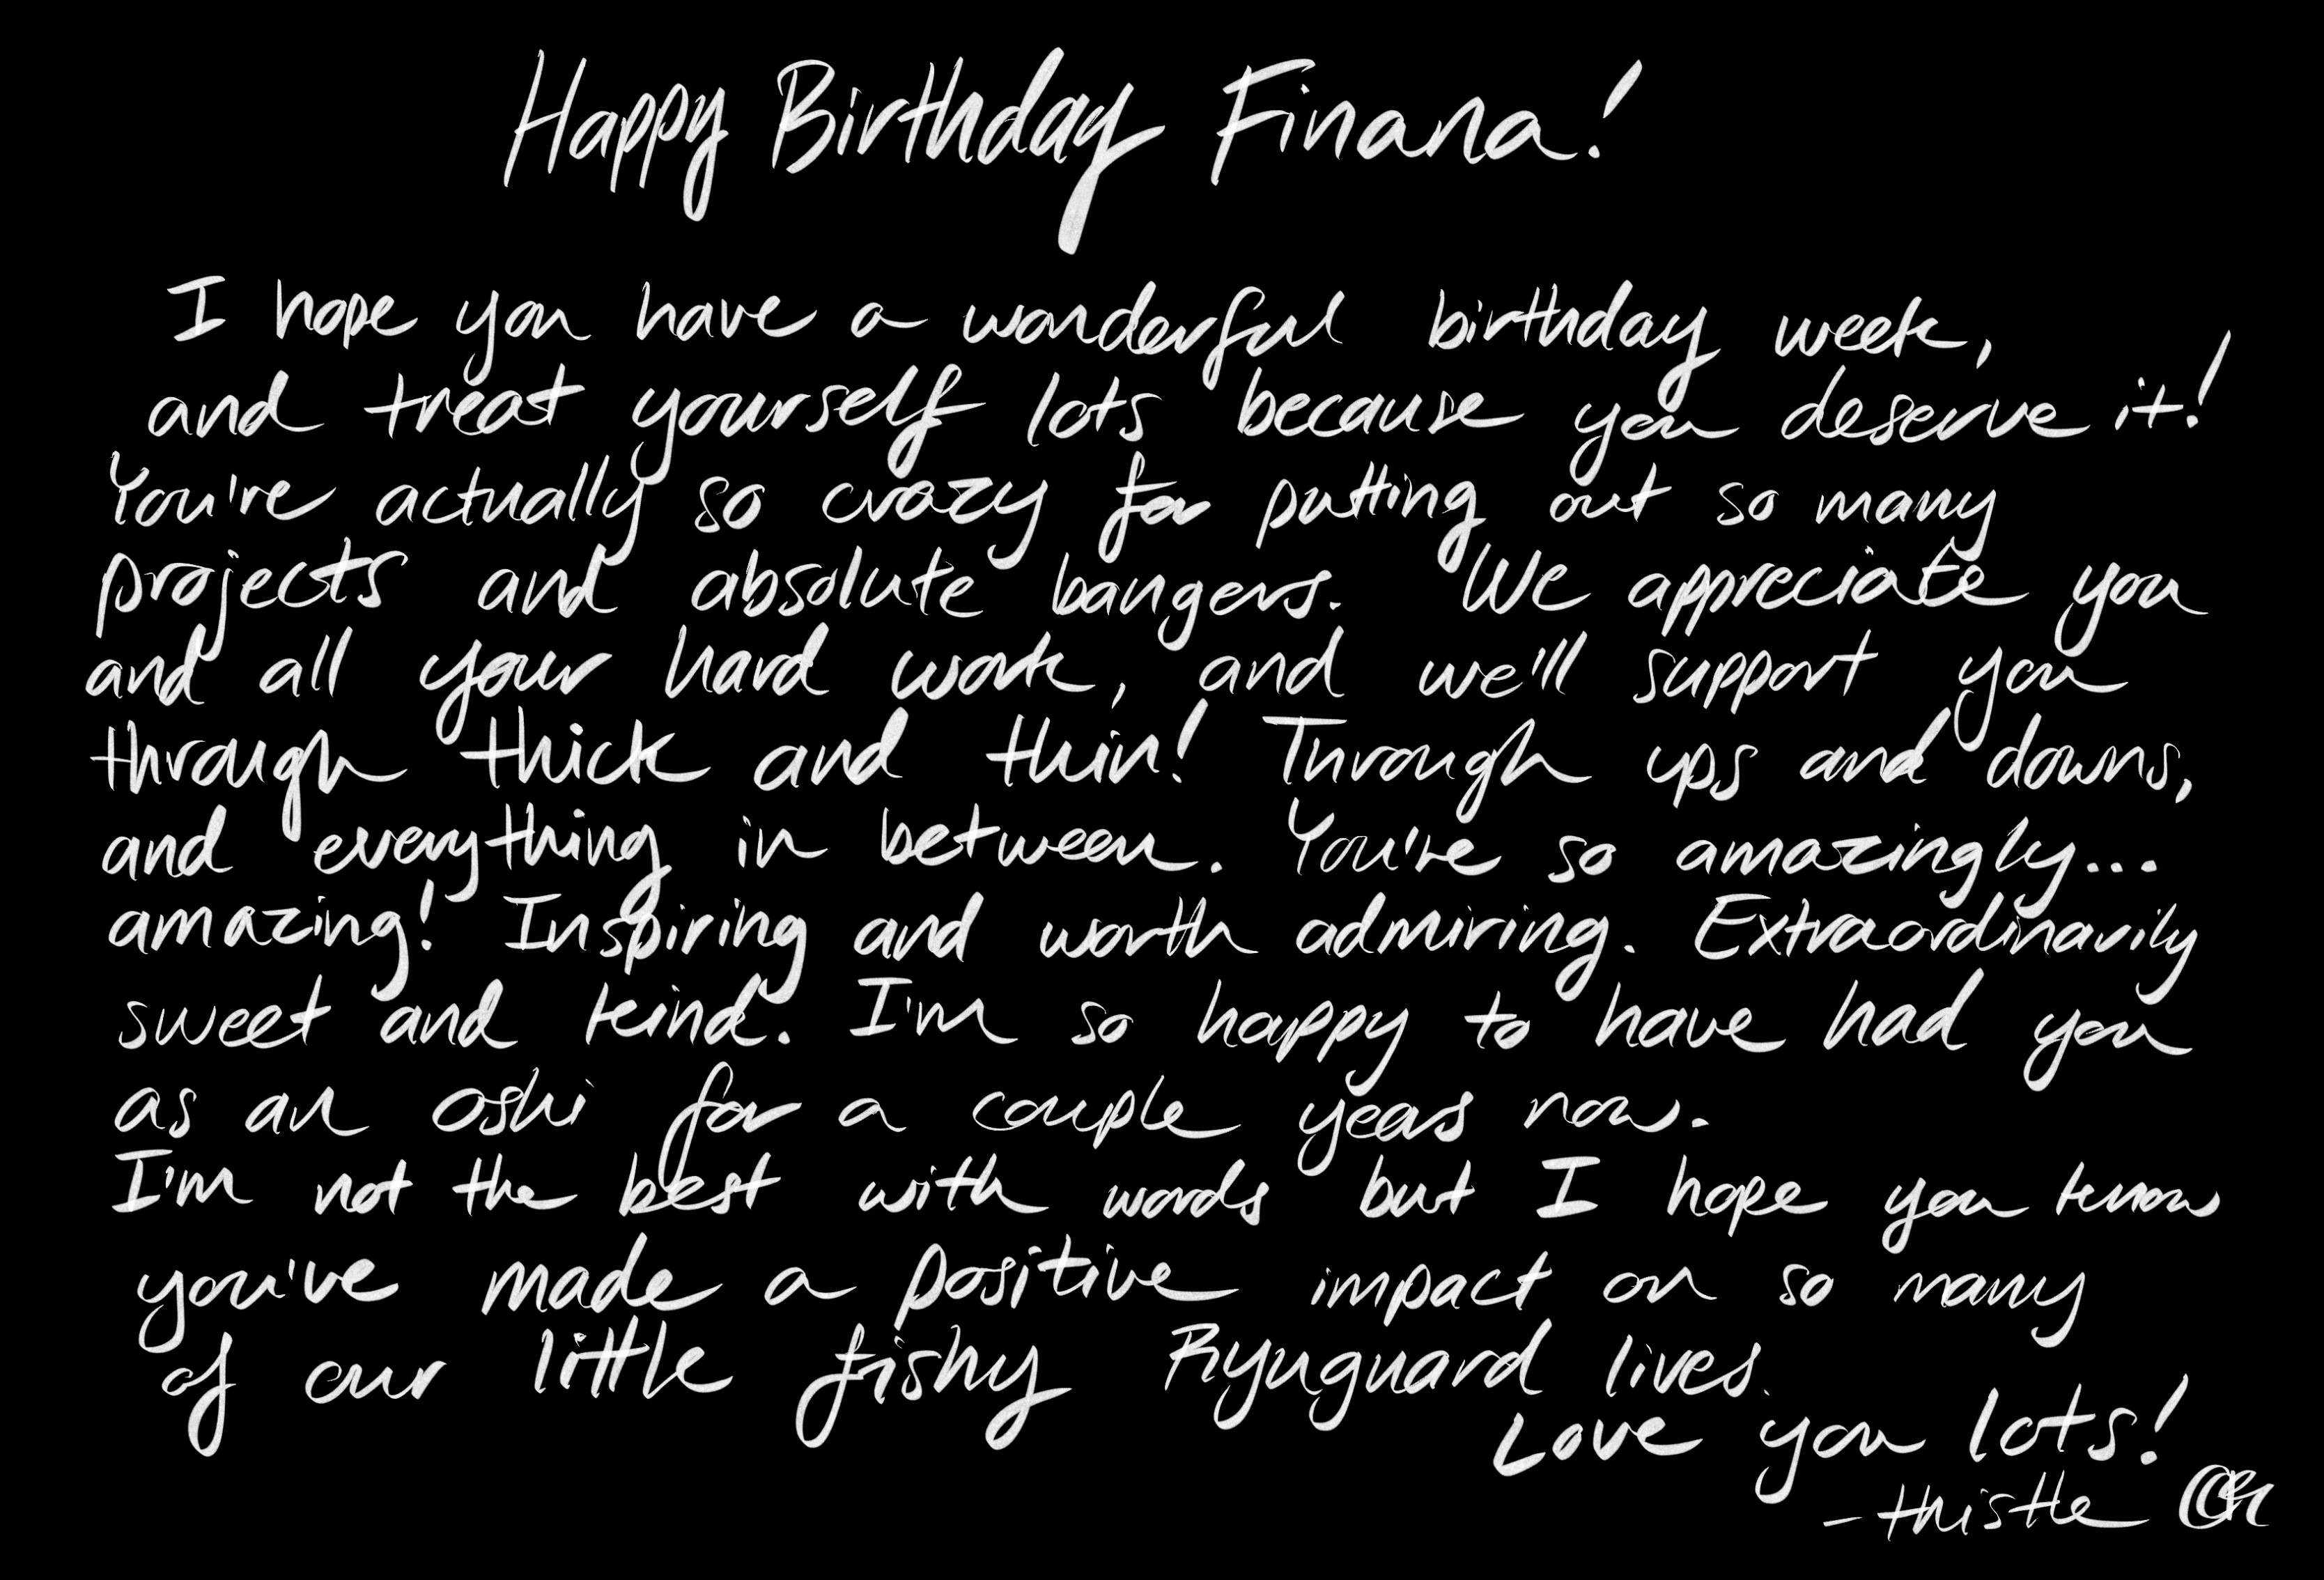 Happy Birthday Finana!
I hope you have a wonderful birthday week,
and treat yourself lots because you deserve it!
You're actually so crazy for putting out so many
projects and absolute bangers. We appreciate you
and all your hard work, and we'll support you
through thick and thin! Through ups and downs,
and everything in between. You're so amazingly...
amazing! Inspiring and worth admiring. Extraordinarily
sweet and kind. I'm so happy to have had you
as an oshi for a couple years now.
I'm not the best with words but I hope you know
you've made a positive impact on so many
of our little fishy Ryuguard lives.
Love you lots!
- thistle